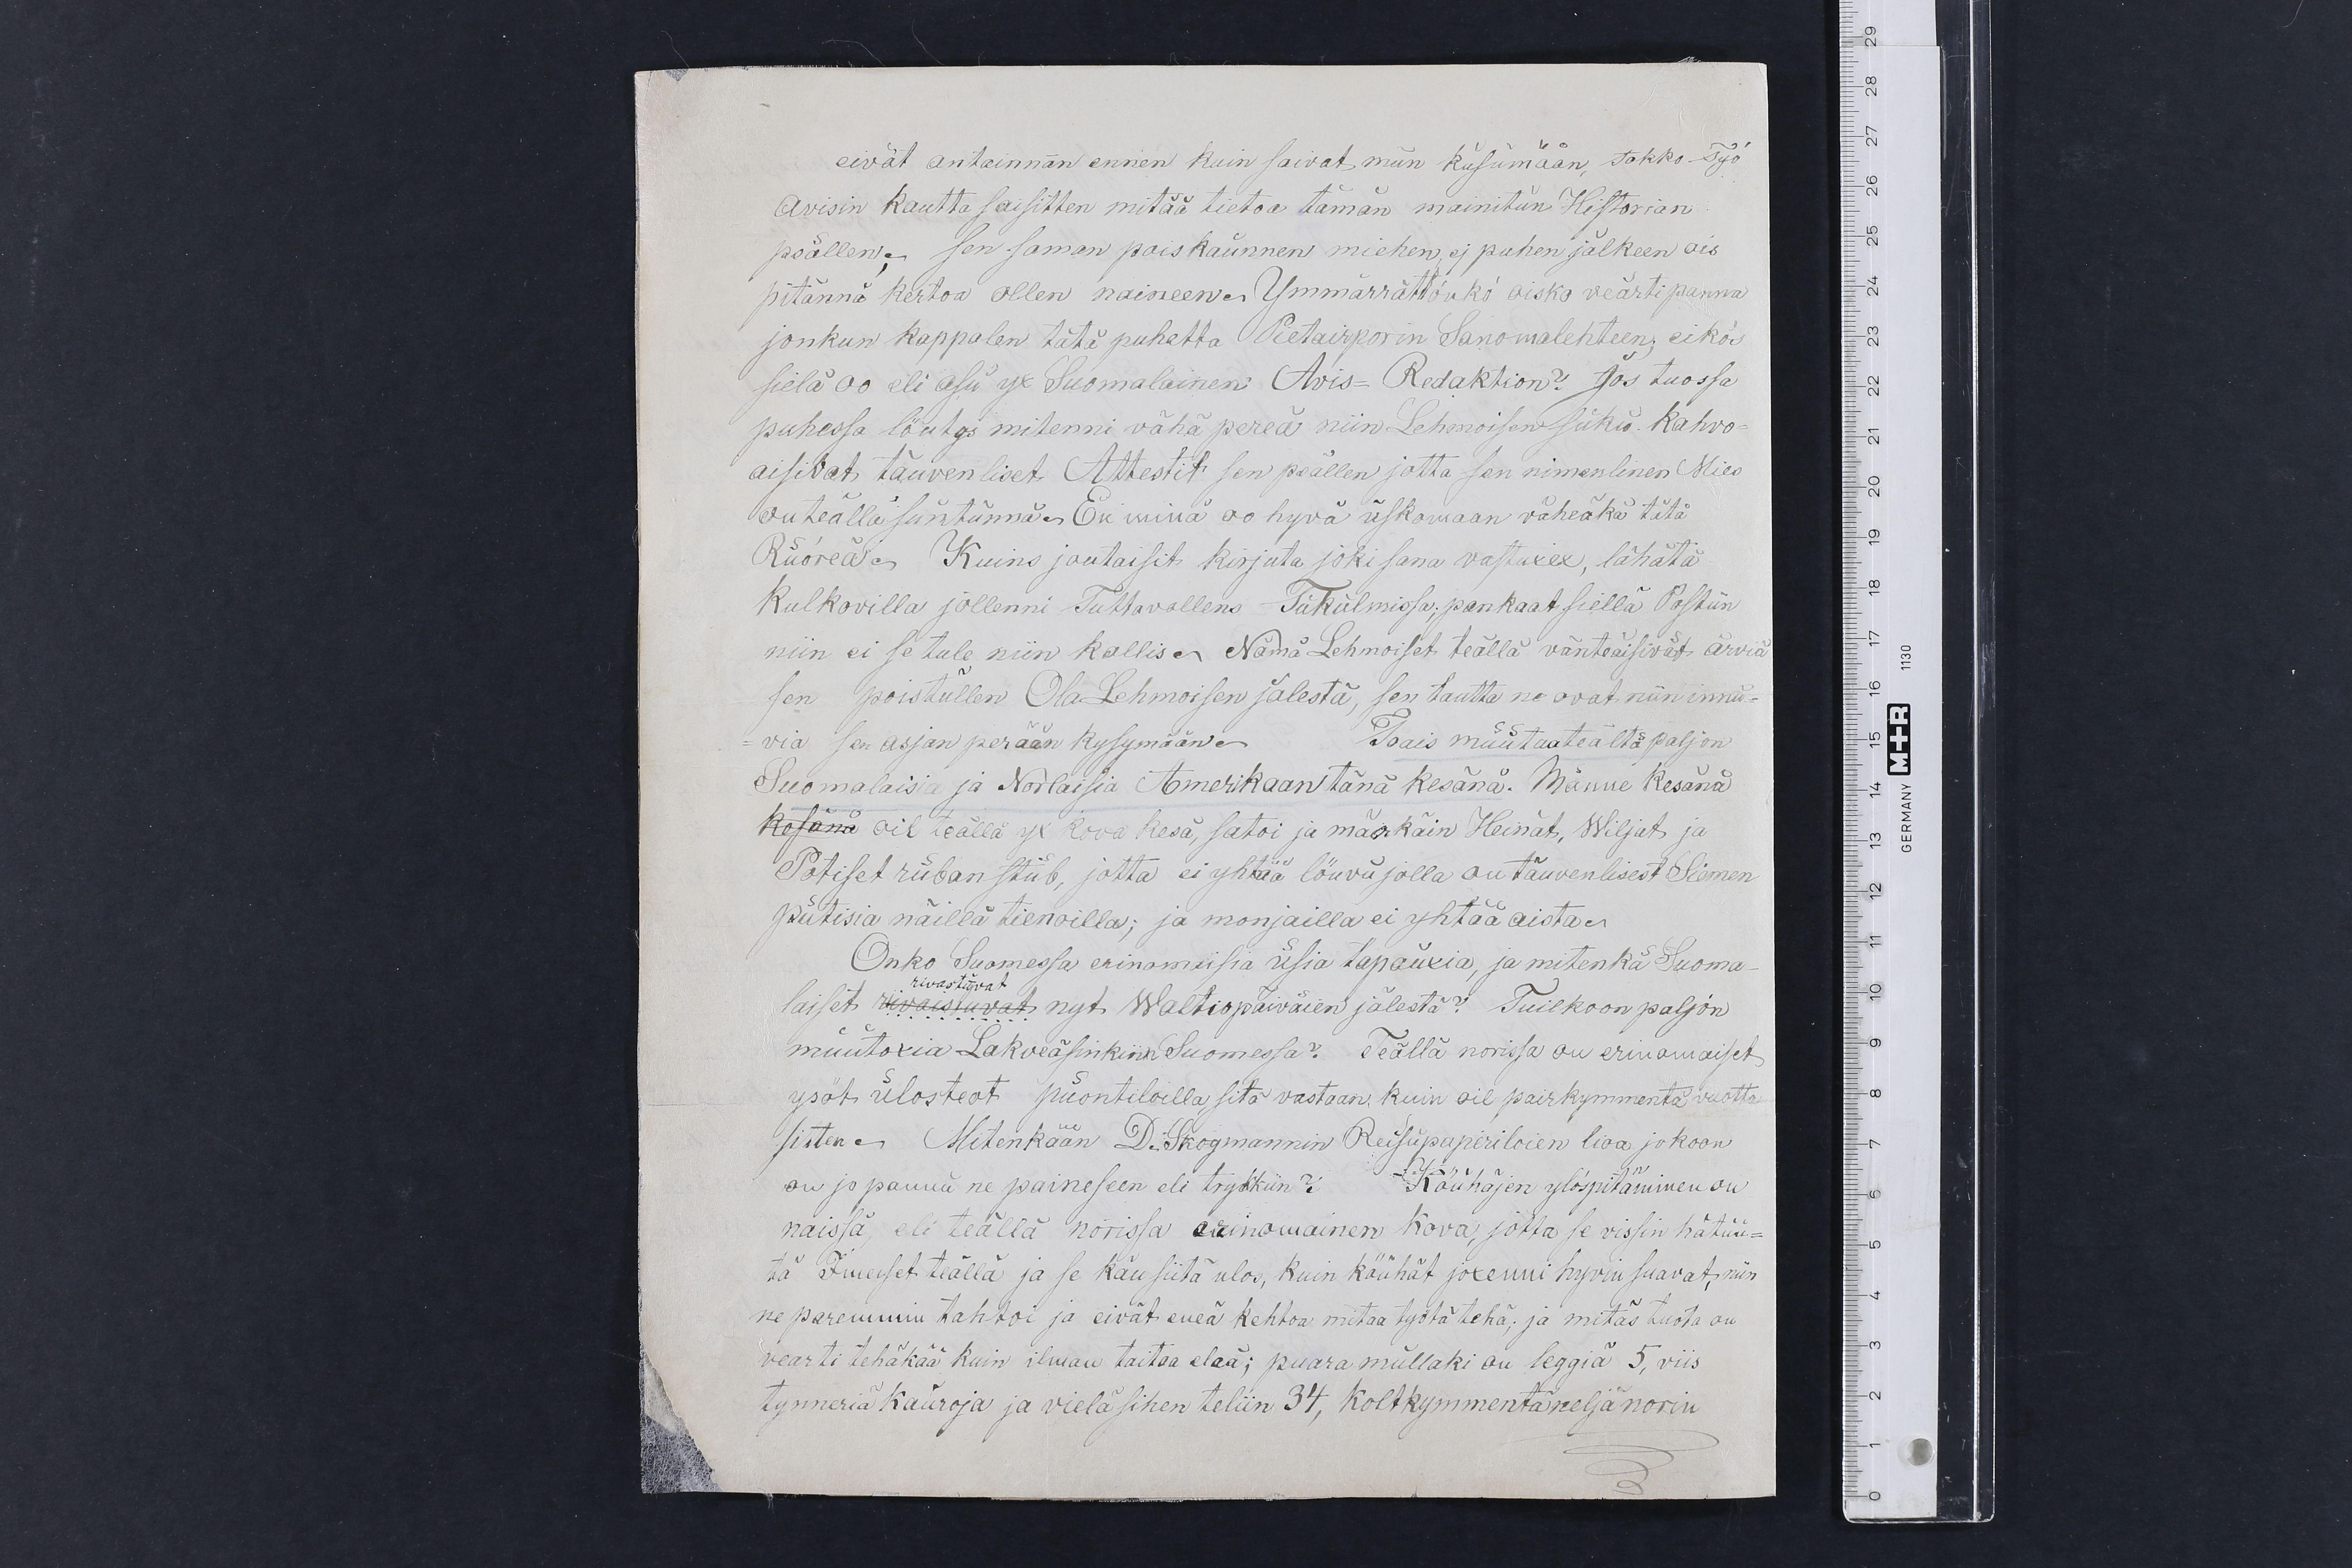 eivät antainnan ennen kuin saivat mün küsümään, Takko Työ
Avisin kautta saisitten mitää tietoa tämän mainitun Historian
peällen; sen saman poiskäünnen miehen, ej puhen jälkeen ois
pitännä kertoa ollen naineen. Ymmärrättöükö oisko veärti panna
jonkun kappalen tätä puhetta Pietairporin Sanomalehteen, eikös
sielä oo eli asü yx Suomalainen Avis= Redaktion? Jos tuossa
puhessa löutys mitenni vähä pereä niin Lehmoisen süku. kahvo=
aisivat täuvenliset Attestit sen peällen jotta sen nimenlinen Mies
on teällä süntünnä. En minä oo hyvä üskomaan väheäkä tätä
Rüöreä. Kuins joutaisit kirjuta jokisana vastuxex, lähätä
kulkovilla jollenni Tuttavallens Tükülmissa; pankaat siellä Postiin
niin ei se tule niin kallis. Nämä Lehmoiset teällä vänteäisivät ärviä
sen poistullen Ola Lehmoisen jälestä, sen tautta ne ovat niin innu=
=via sen asjan perään kysymään. Toais müütaa teältä paljon
Suomalaisia ja Norlaisia Amerikaan tänä kesänä. Männe Kesänä
kesänä oil teällä yx kova kesä, satoi ja märkäin Heinät, Wiljat ja
Potiset rüban stüb, jotta ei yhtää löuvü jolla on täuvenlisest Siemen
pütisia näillä tienoilla; ja monjailla ei yhtää aista.
Onko Suomessa erinomaisia üsia tapauxia, ja mitenkä Suoma-
rivastüvat
laiset rivaistuvat nyt Waltiopäiväien jälestä? Tuilkoon paljon
müütoxia Lakveäsinkiin Suomessa? Teällä norissa on erinomaiset
ysöt ülosteot püontiloilla sitä vastaan kuin oil pairkymmentä vuotta
sitten. Mitenkään D. Skogmannin Reisüpapériloien lioa jokoon
on jo pannu ne paineseen eli trykkiin? Köühäjen ylöspitäminen on
naissä, eli teällä norissa erinomainen kova, jotta se vissin hätüü=
tä Imeiset teällä ja se käu siitä ulos, kuin köühät joxenni hyvin suavat, niin
ne paremmin tahtoi ja eivät eneä kehtoa mitaa työtä tehä; ja mitäs tuota on
vearti tehäkää kuin ilman taitaa elaä; puara mullaki on leggiä 5, viis
tynneriä Kauroja ja vielä siihen teliin 34, Koltkymmentäneljä norin